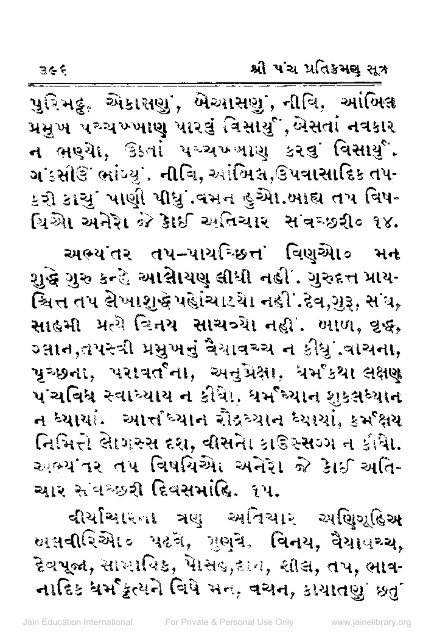 ૩૯૬ શ્રી પંચ પ્રતિક્રમણ સૂત્ર
પુરિમઢ્ઢ, એકાસણું, બેઆસણું, નીવિ, આંબિલ
પ્રમુખ પચ્ચખ્ખાણ પારવું વિસાર્યું, બેસતાં નવકાર
ન ભણ્યો, ઉઠતાં પચ્ચખ્ખાણ કરવું વિસાર્યું.
ગંઠસીઉં ભાંગ્યું. નીવિ, આંબિલ, ઉપવાસાદિક તપ-
કરી કાચું પાણી પીધું. વમન હુઓ. બાહ્ય તપ વિષ-
યિઓ અનેરો જે કોઈ અતિચાર સંવચ્છરી૦ ૧૪.
અભ્યંતર તપ-પાયચ્છિત્તં વિણઓ૦ મન
શુદ્ધે ગુરુ કન્હે આલોયણ લીધી નહીં. ગુરુદત્ત પ્રાય-
શ્ચિત્ત તપ લેખાશુદ્ધે પહોંચાડ્યો નહીં. દેવ, ગુરૂ, સંઘ,
સાહમી પ્રત્યે વિનય સાચવ્યો નહીં. બાળ, વૃદ્ધ,
ગ્લાન, તપસ્વી પ્રમુખનું વૈયાવચ્ચ ન કીધું. વાચના,
પૃચ્છના, પરાવર્તના, અનુપ્રેક્ષા, ધર્મકથા લક્ષણ
પંચવિધ સ્વાધ્યાય ન કીધો. ધર્મધ્યાન શુકલધ્યાન
ન ધ્યાયાં. આર્ત્તધ્યાન રૌદ્રધ્યાન ધ્યાયાં, કર્મક્ષય
નિમિત્તે લોગસ્સ દશ, વીસનો કાઉસ્સગ્ગ ન કીધો.
અભ્યંતર તપ વિષયિઓ અનેરો જે કોઈ અતિ-
ચાર સંવચ્છરી દિવસમાંહિ. ૧૫.
વીર્યાચારના ત્રણ અતિચાર અણિગૂહિઅ
બલવીરિઓ૦ પઢવે, ગુણવે, વિનય, વૈયાવચ્ચ,
દેવપૂજા, સામાયિક, પોસહ, દાન, શીલ, તપ, ભાવ-
નાદિક ધર્મકૃત્યને વિષે મન, વચન, કાયાતણું છતું
Jain Education International For Private & Personal Use Only www.jainelibrary.org